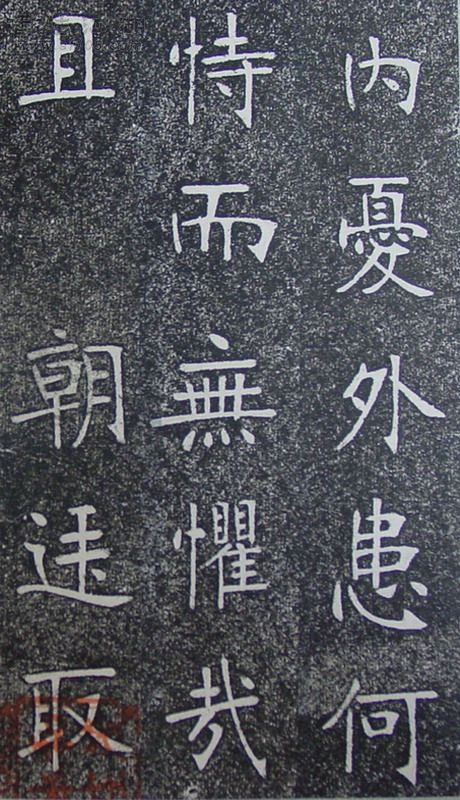 内憂外患何
恃而無懼哉
且 朝廷取